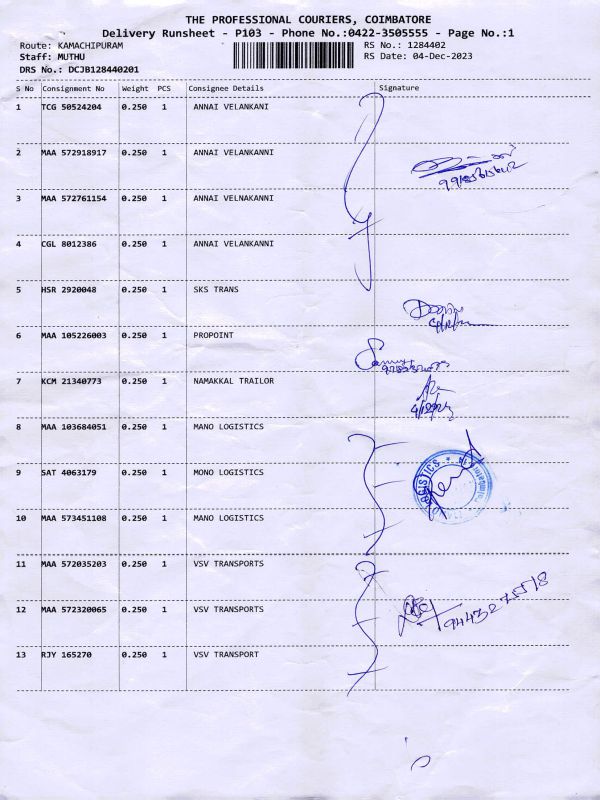 THE PROFESSIONAL COURIERS, COIMBATORE
Delivery Runsheet - P103 - Phone No.:0422-3505555 - Page No.:1
Route: KAMACHIPURAM
RS No.: 1284402
Staff: MUTHU
RS Date: 04-Dec-2023
DRS No.: DCJB128440201
S No Consignment No Weight PCS Consignee Details Signature
1 TCG 50524204 0.250 1 ANNAI VELANKANI
2 MAA 572918917 0.250 1 ANNAI VELANKANNI
3 MAA 572761154 0.250 1 ANNAI VELNAKANNI
4 CGL 8012386 0.250 1 ANNAI VELANKANNI
5 HSR 2920048 0.250 1 SKS TRANS
6 MAA 105226003 0.250 1 PROPOINT
7 KCM 21340773 0.250 1 NAMAKKAL TRAILOR
8 MAA 103684051 0.250 1 MANO LOGISTICS
9 SAT 4063179 0.250 1 MONO LOGISTICS
10 MAA 573451108 0.250 1 MANO LOGISTICS
11 MAA 572035203 0.250 1 VSV TRANSPORTS
12 MAA 572320065 0.250 1 VSV TRANSPORTS
9443275518
13 RJY 165270 0.250 1 VSV TRANSPORT